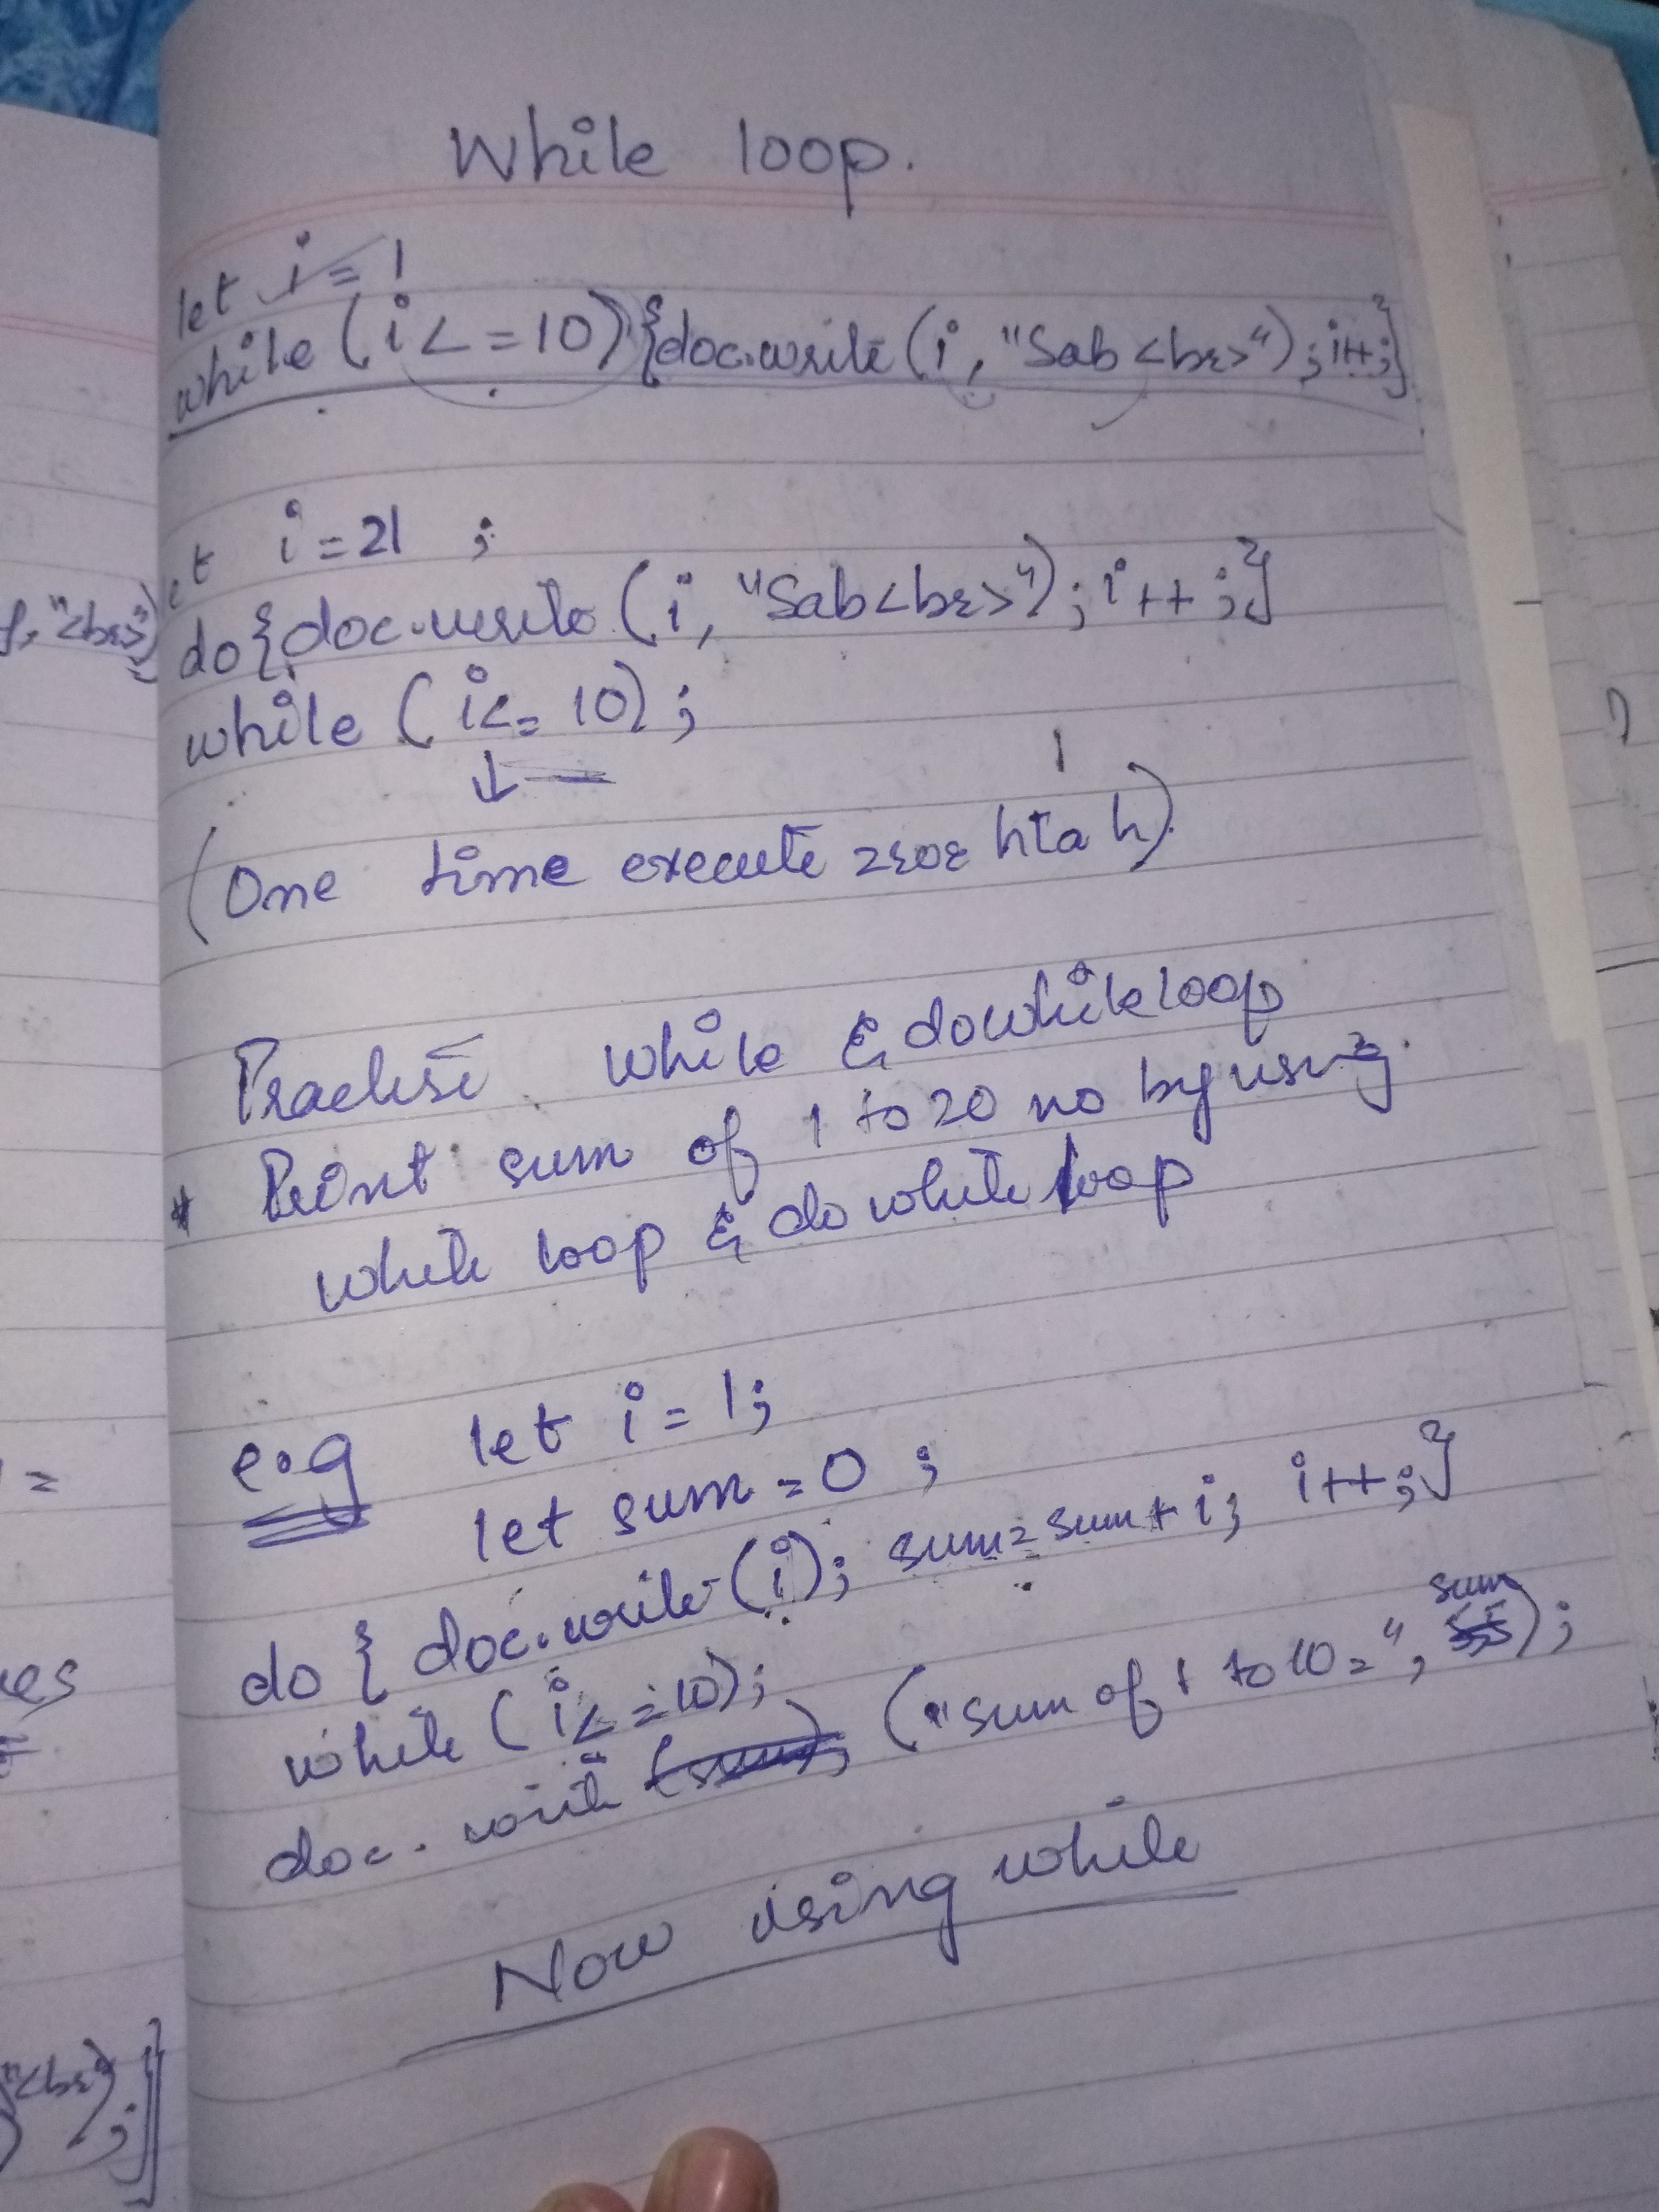 While loop.
let i = 1
while (i <= 10) {doc.write (i, "Sab <br>"); i++;}
et i = 21 ;
do {doc.write (i, "Sab<br>"); i++ ;}
while (i <= 10) ;
(One time execute zror hta h)
Practise while & dowhile loop
* Print sum of 1 to 20 no by using
while loop & do while loop
e.g let i = 1;
let sum = 0 ;
do { doc.write (i); sum = sum + i; i++;}
while (i <= 10);
sum
doc. write ("sum of 1 to 10 = ", );
Now using while
"<br>")
=
es
"<br>");}